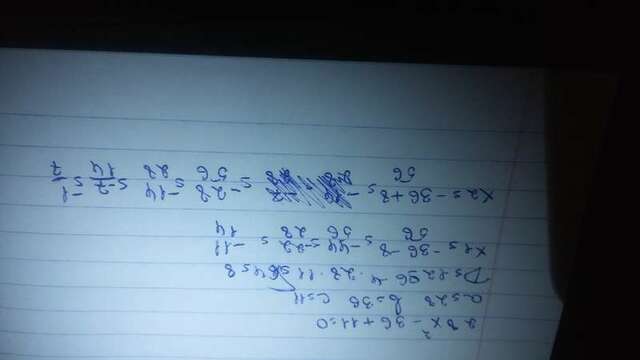 28x² - 36 + 11 = 0
a = 28 b = 36 c = 11
D = 1296 - 4 · 28 · 11 = 64 = 8
x1 = -36 - 8 / 56 = -44 / 56 = -22 / 28 = -11 / 14
x2 = -36 + 8 / 56 = = -28 / 56 = -14 / 28 = -7 / 14 = -1 / 7